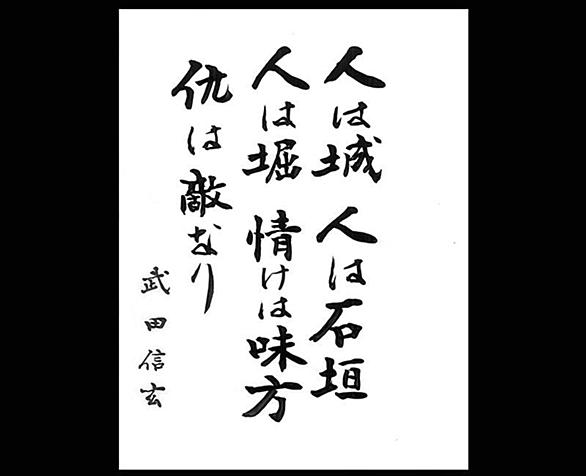 人は城 人は石垣
人は堀 情けは味方
仇は敵なり
武田信玄